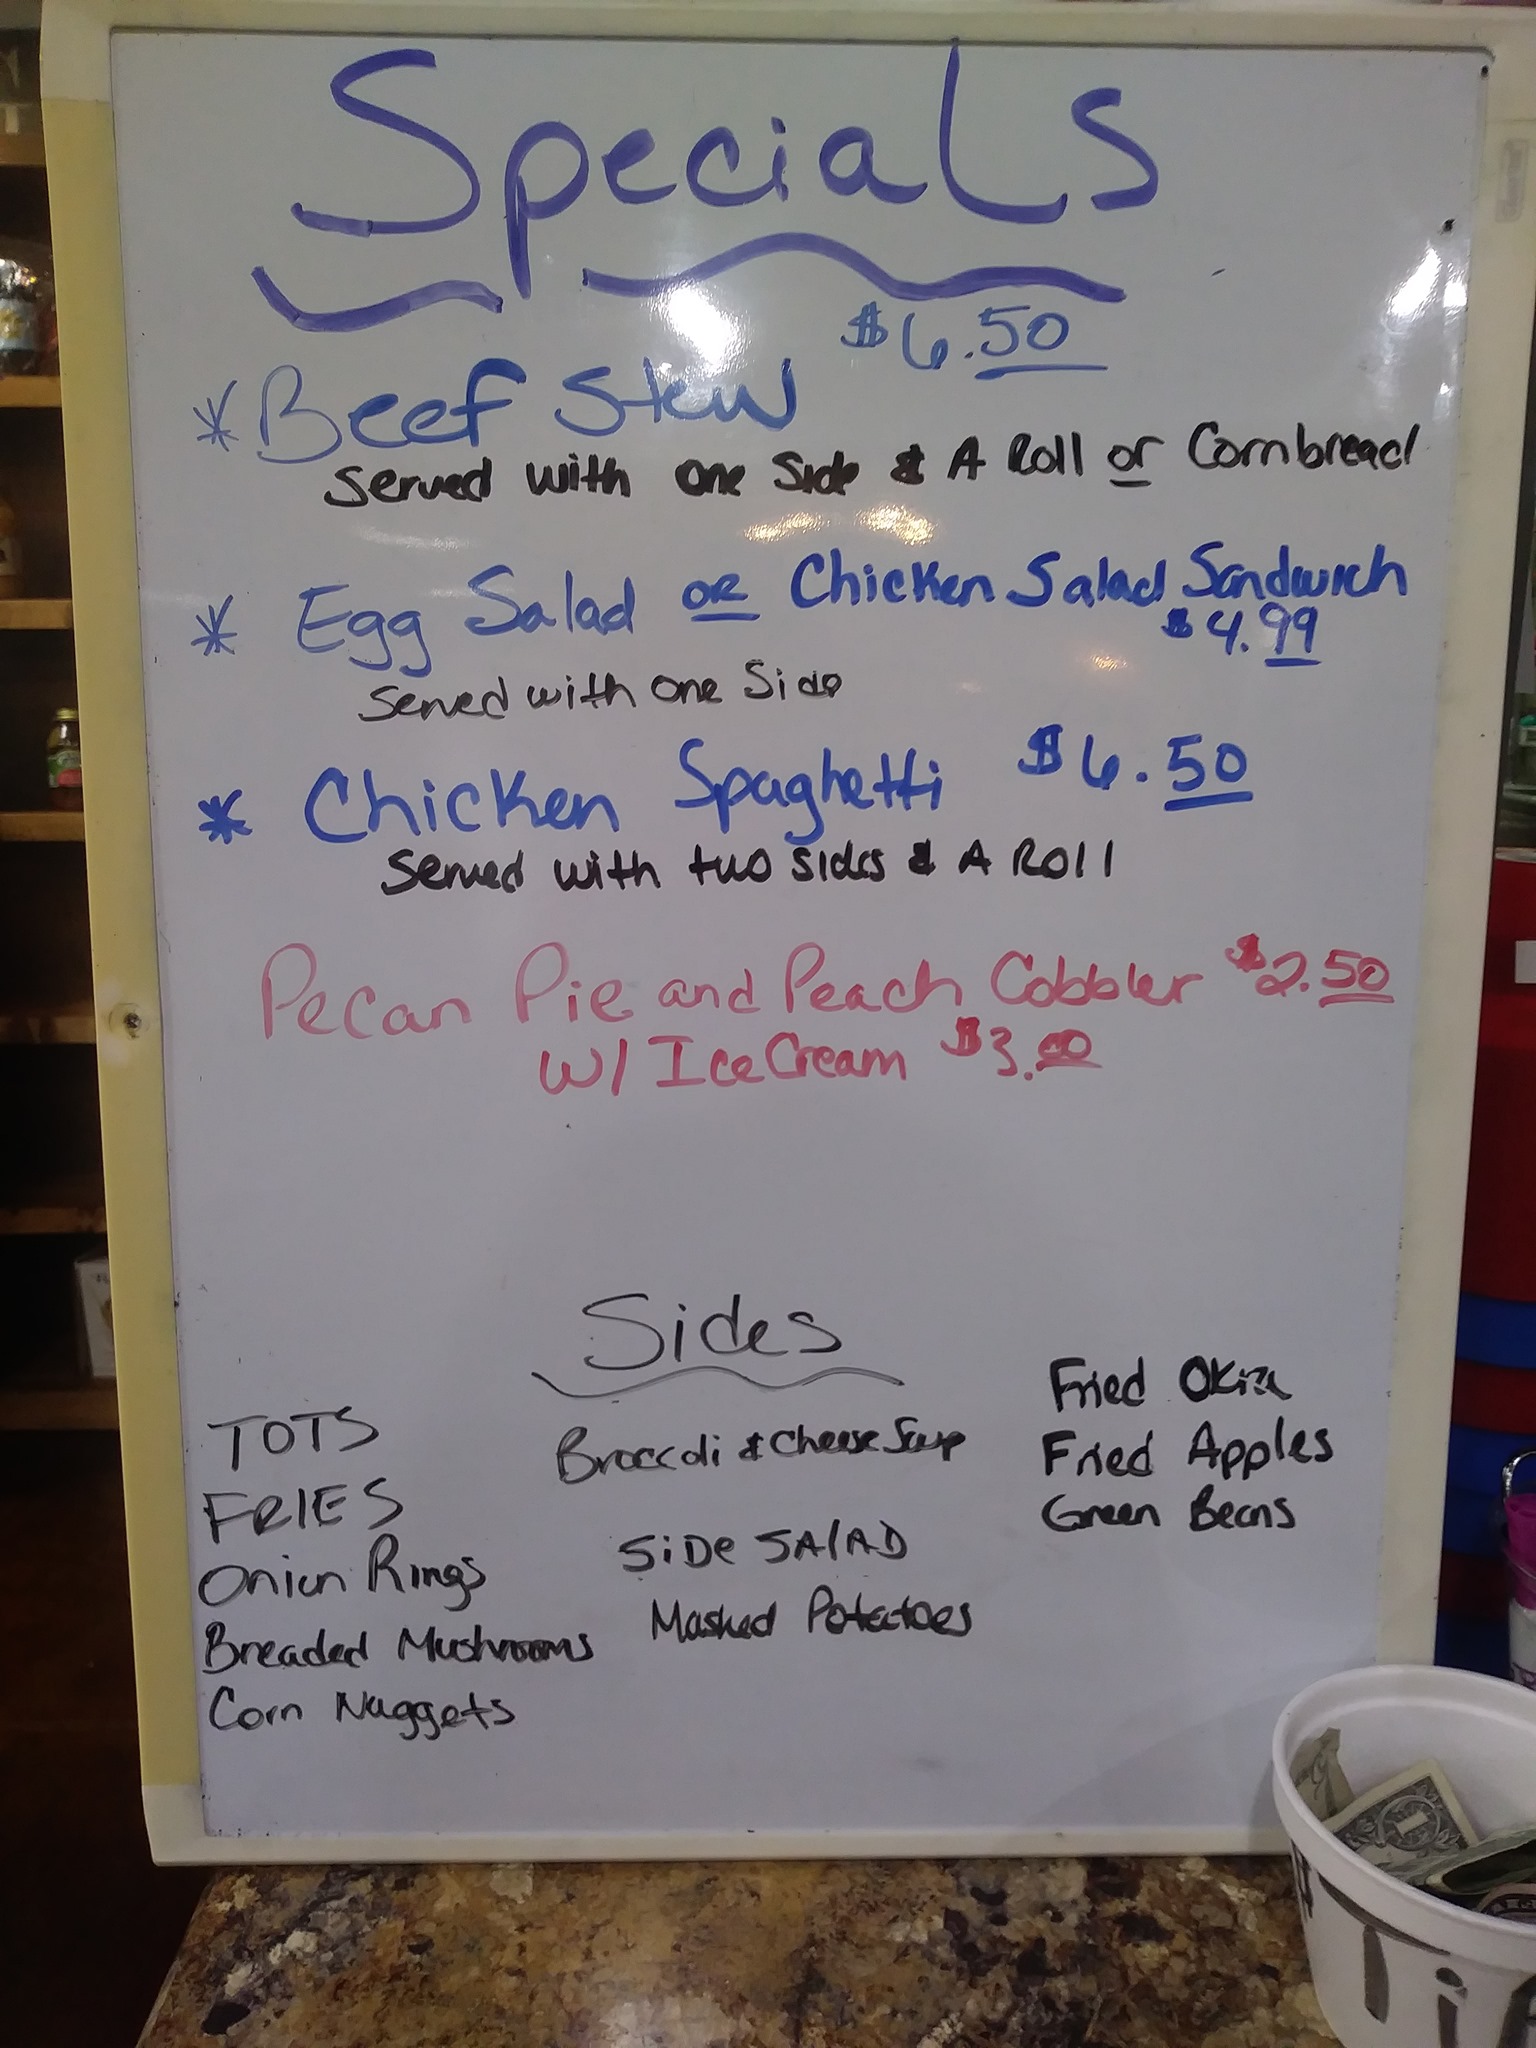 Specials
$6.50
*Beef Stew
Served with one Side & A Roll or Cornbread
* Egg Salad OR Chicken Salad Sandwich
$4.99
Served with one Side
* Chicken Spaghetti $6.50
Served with two sides & A Roll
Pecan Pie and Peach Cobbler $2.50
w/ Ice Cream $3.00
Sides
TOTS
FRIES
Onion Rings
Breaded Mushrooms
Corn Nuggets
Broccoli & Cheese Soup
SiDe SAlAD
Mashed Potatoes
Fried Okra
Fried Apples
Green Beans